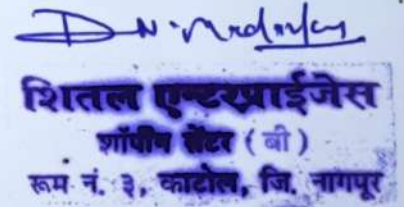 शितल एन्टरप्राईजेस
शॉपींग सेंटर (बी)
रूम नं. ३, काटोल, जि. नागपूर